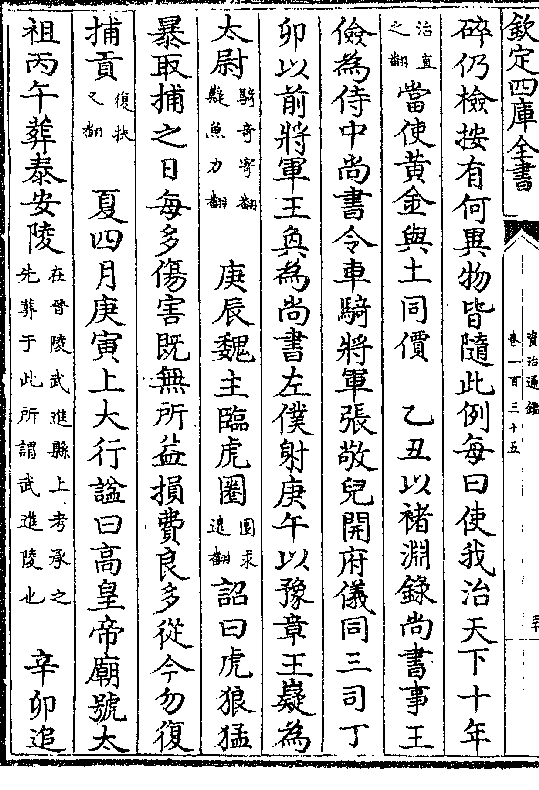 欽定四庫全書
資治通鑑
卷一百三十五
碎仍檢按有何異物皆隨此例每曰使我治天下十年
治直之翻當使黃金與土同價　乙丑以褚淵錄尚書事王
儉為侍中尚書令車騎將軍張敬兒開府儀同三司丁
卯以前將軍王奐為尚書左僕射庚午以豫章王嶷為
太尉騎奇寄翻嶷魚力翻　庚辰魏主臨虎圈圈求遠翻詔曰虎狼猛
暴取捕之日每多傷害既無所益損費良多從今勿復
捕貢復扶又翻　夏四月庚寅上大行諡曰高皇帝廟號太
祖丙午葬泰安陵在晉陵武進縣上考承之先葬于此所謂武進陵也　辛卯追